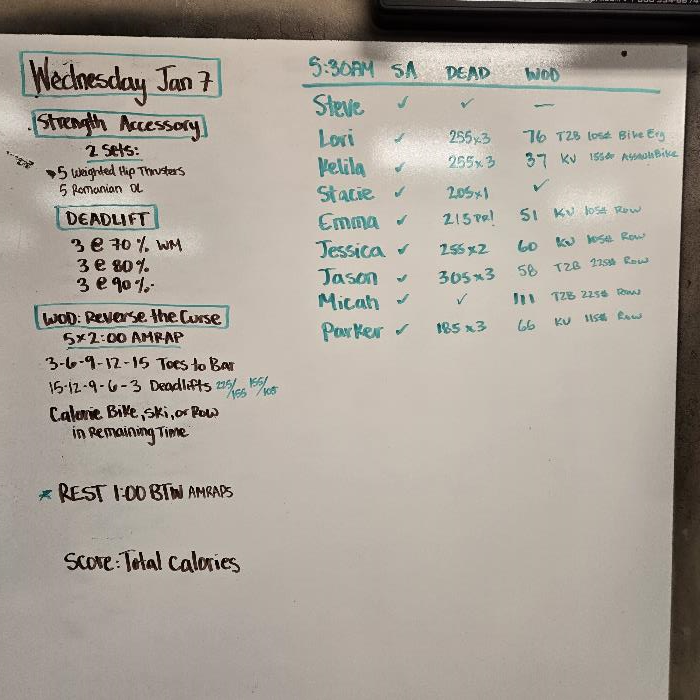 Wednesday Jan 7
Strength Accessory
2 Sets:
5 Weighted Hip Thrusters
5 Romanian DL
DEADLIFT
3 @ 70% WM
3 @ 80%
3 @ 90%
WOD: Reverse the Curse
5x2:00 AMRAP
3-6-9-12-15 Toes to Bar
15-12-9-6-3 Deadlifts 225/155 155/105
Calorie Bike, Ski, or Row
in Remaining Time
* REST 1:00 BTW AMRAPS
Score: Total Calories
5:30AM SA DEAD WOD
Steve ✓ ✓ —
Lori ✓ 255x3 76 T2B 105# Bike Erg
Kelila ✓ 255x3 37 KU 155# Assault Bike
Stacie ✓ 205x1 ✓
Emma ✓ 215 PR! 51 KU 105# Row
Jessica ✓ 255x2 60 KU 105# Row
Jason ✓ 305x3 58 T2B 225# Row
Micah ✓ ✓ 111 T2B 225# Row
Parker ✓ 185x3 66 KU 115# Row